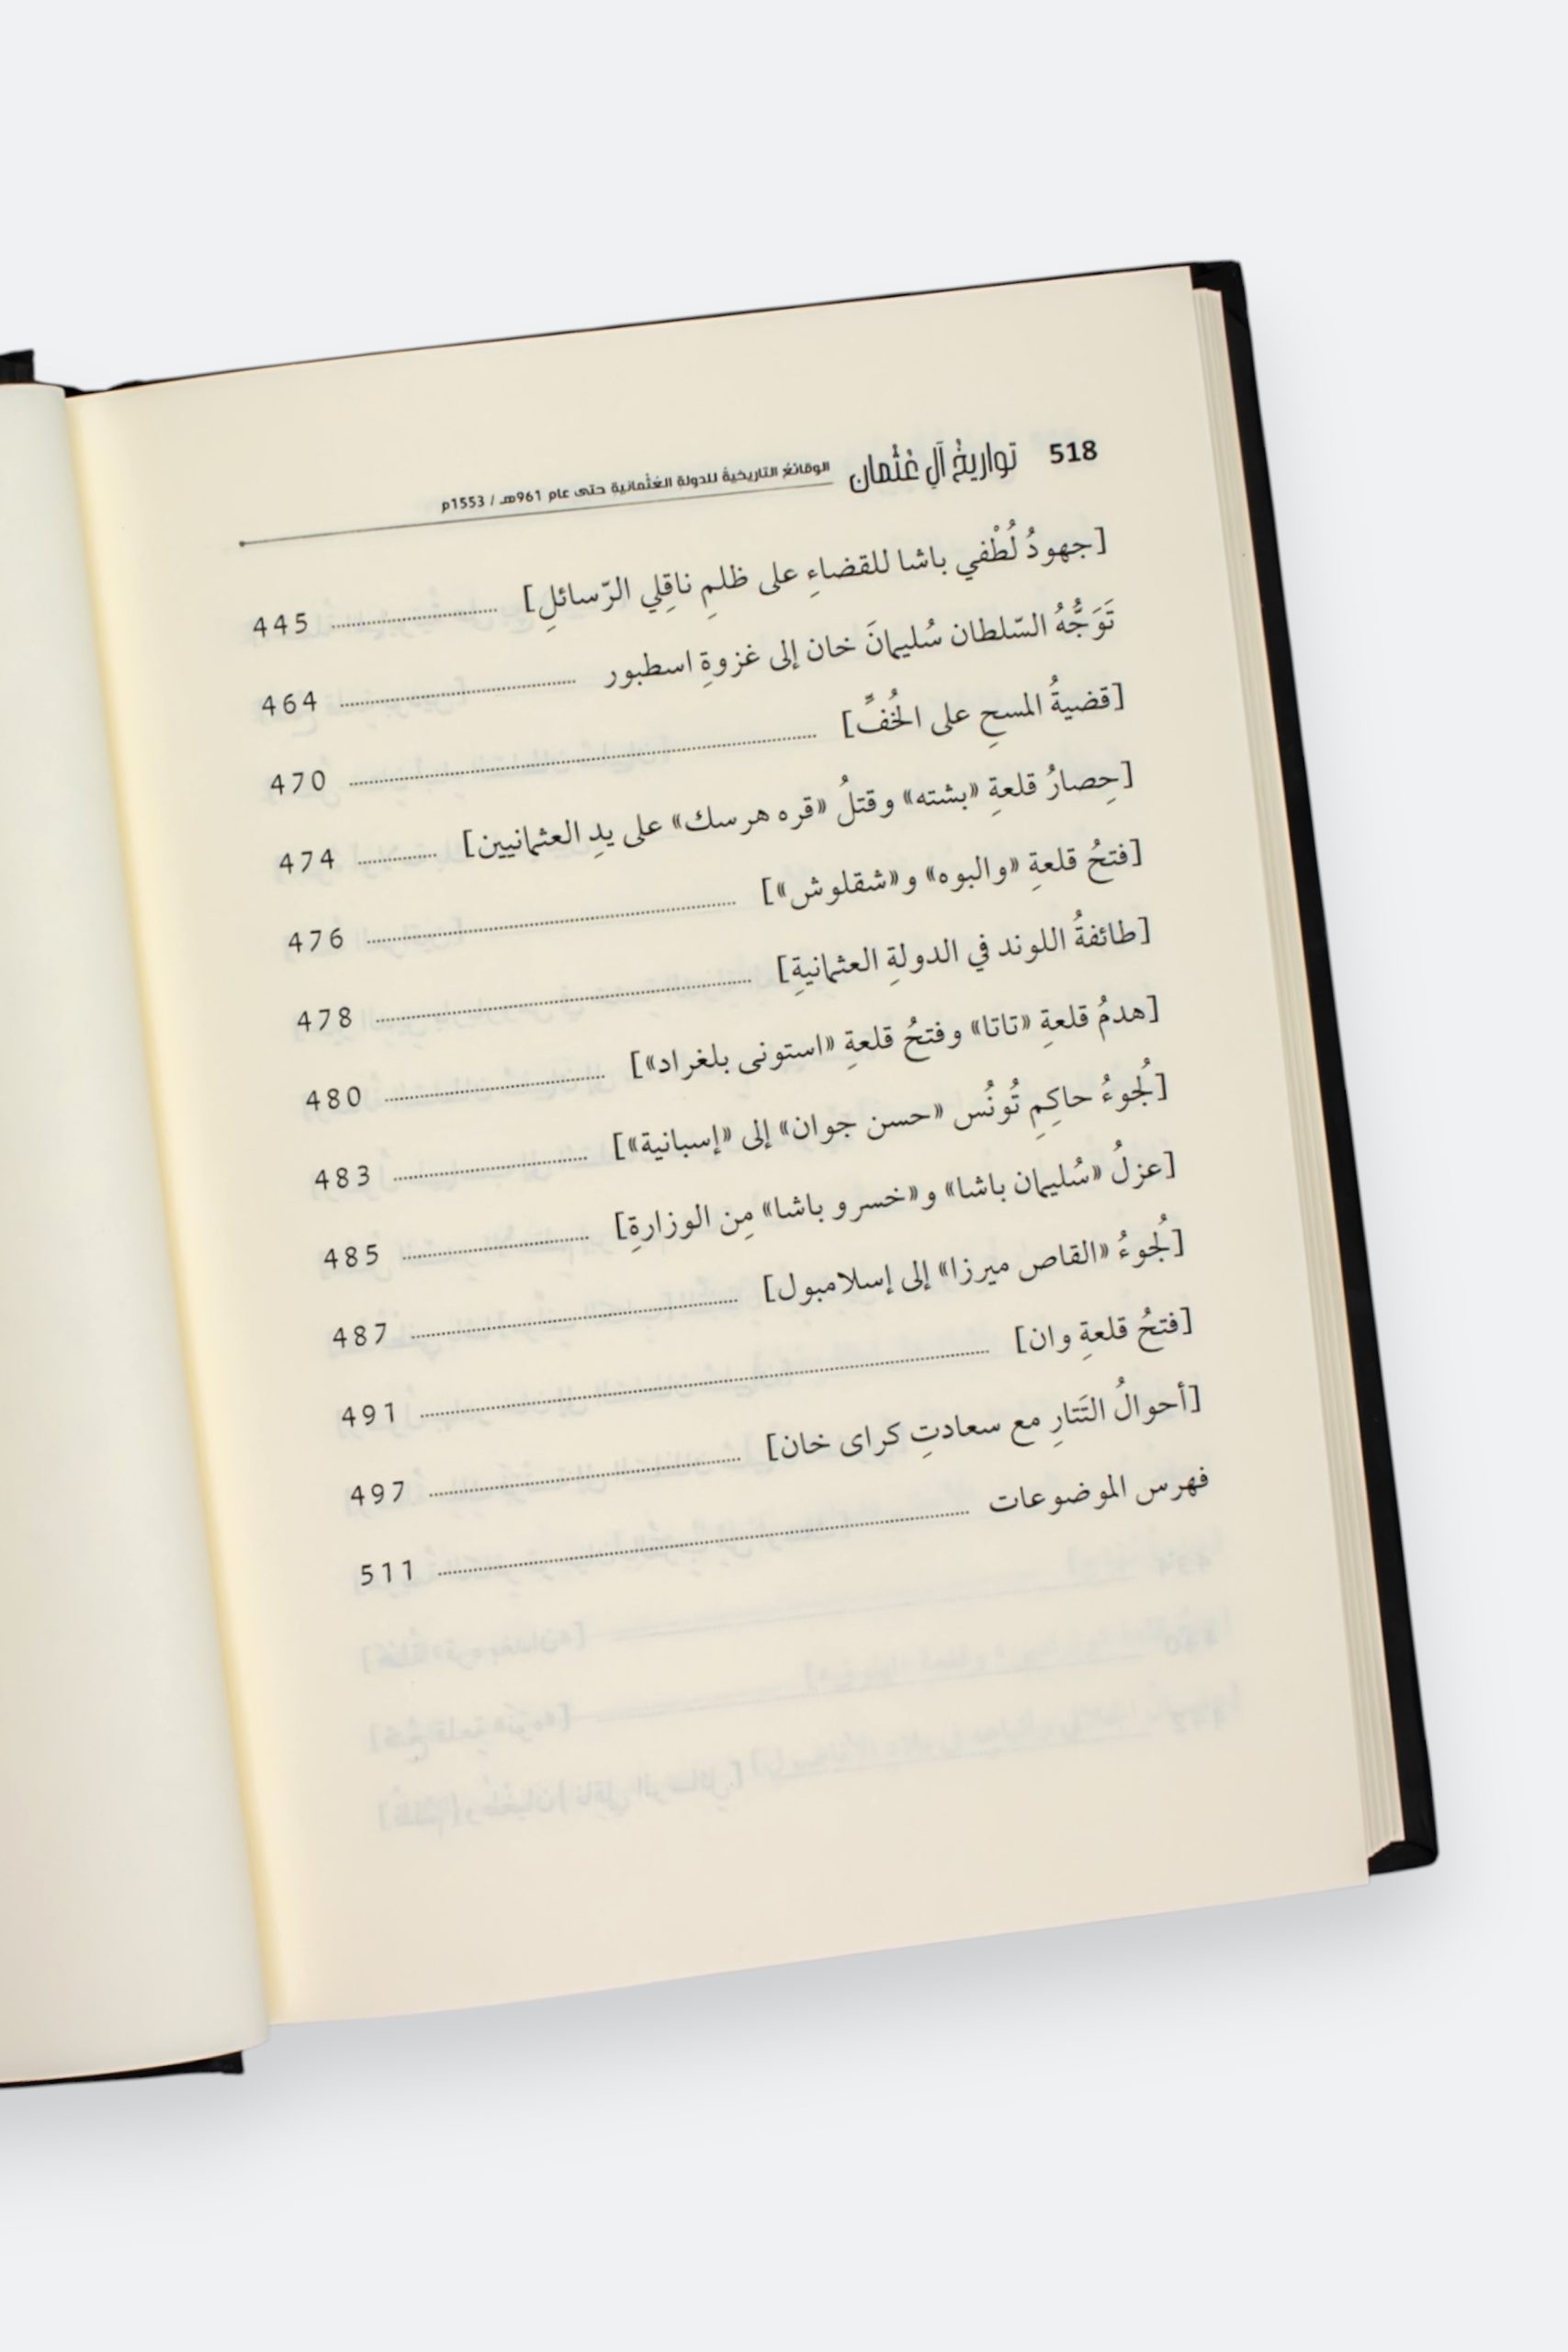 518 تواريخُ آلِ عُثْمان الوقائعُ التاريخيةُ للدولةِ العُثْمانيةِ حتى عام 961هـ / 1553م
[جهودُ لُطْفي باشا للقضاءِ على ظلمِ ناقِلي الرّسائلِ] 445
تَوَجُّهُ السّلطان سُليمانَ خان إلى غزوةِ اسطبور 464
[قضيةُ المسحِ على الخُفِّ] 470
[حِصارُ قلعةِ «بشته» وقتلُ «قره هرسك» على يدِ العثمانيين] 474
[فتحُ قلعةِ «والبوه» و«شقلوش»] 476
[طائفةُ اللوند في الدولةِ العثمانيةِ] 478
[هدمُ قلعةِ «تاتا» وفتحُ قلعةِ «استونى بلغراد»] 480
[لُجوءُ حاكِمِ تُونُس «حسن جوان» إلى «إسبانية»] 483
[عزلُ «سُليمان باشا» و«خسرو باشا» مِن الوزارةِ] 485
[لُجوءُ «القاص ميرزا» إلى إسلامبول] 487
[فتحُ قلعةِ وان] 491
[أحوالُ التَتارِ مع سعادتِ كراى خان] 497
فهرس الموضوعات 511